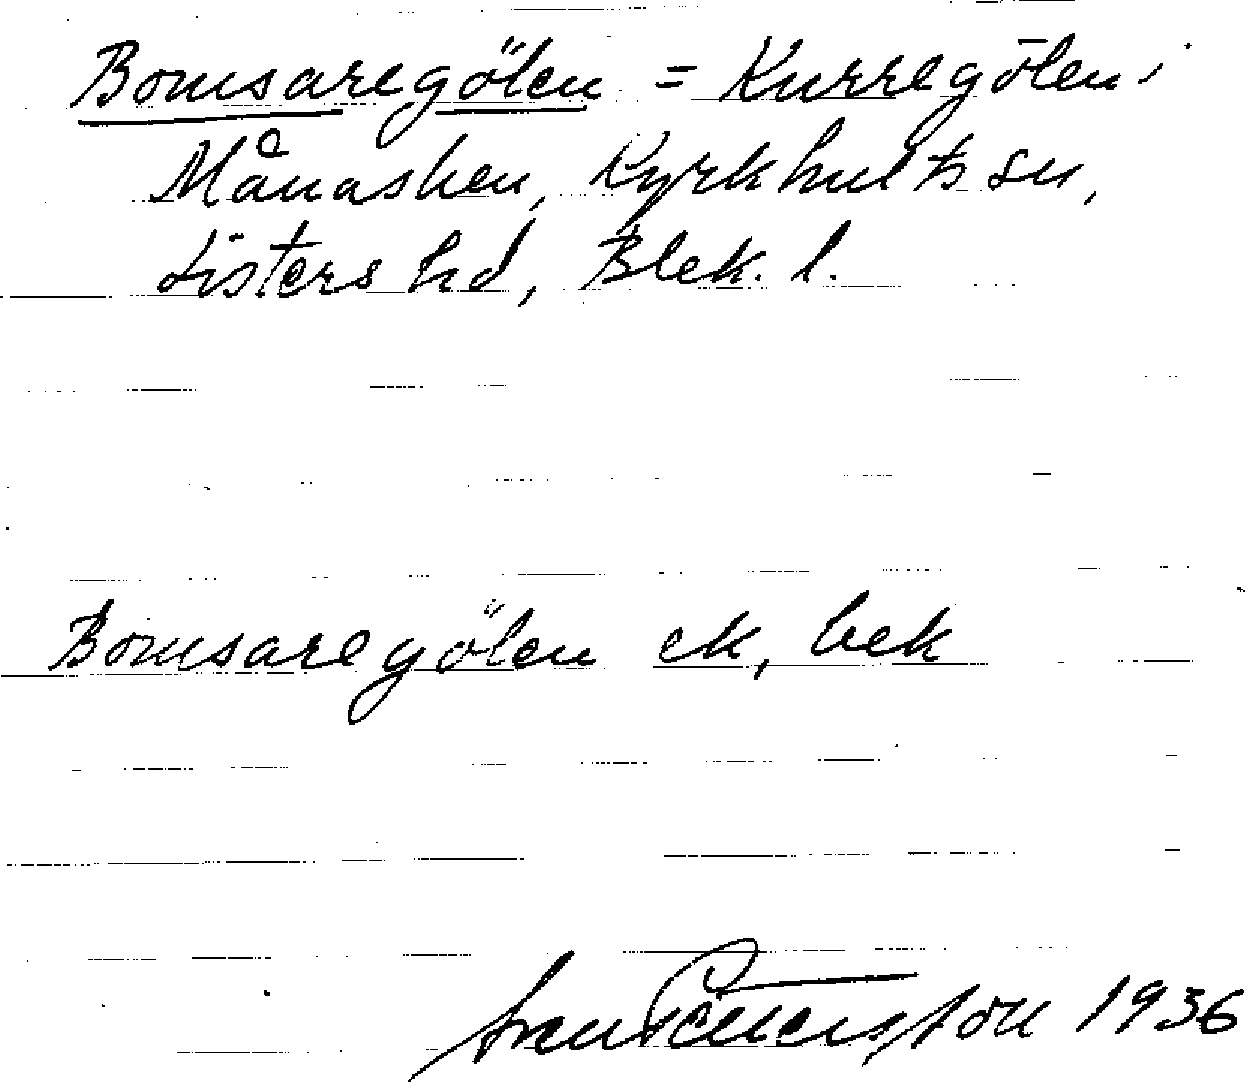 Bomsaregölen = Kurregölen i
Månasken, Kyrkhults sn,
Listers hd, Blek. l.
Bomsaregölen ek, bek
1936